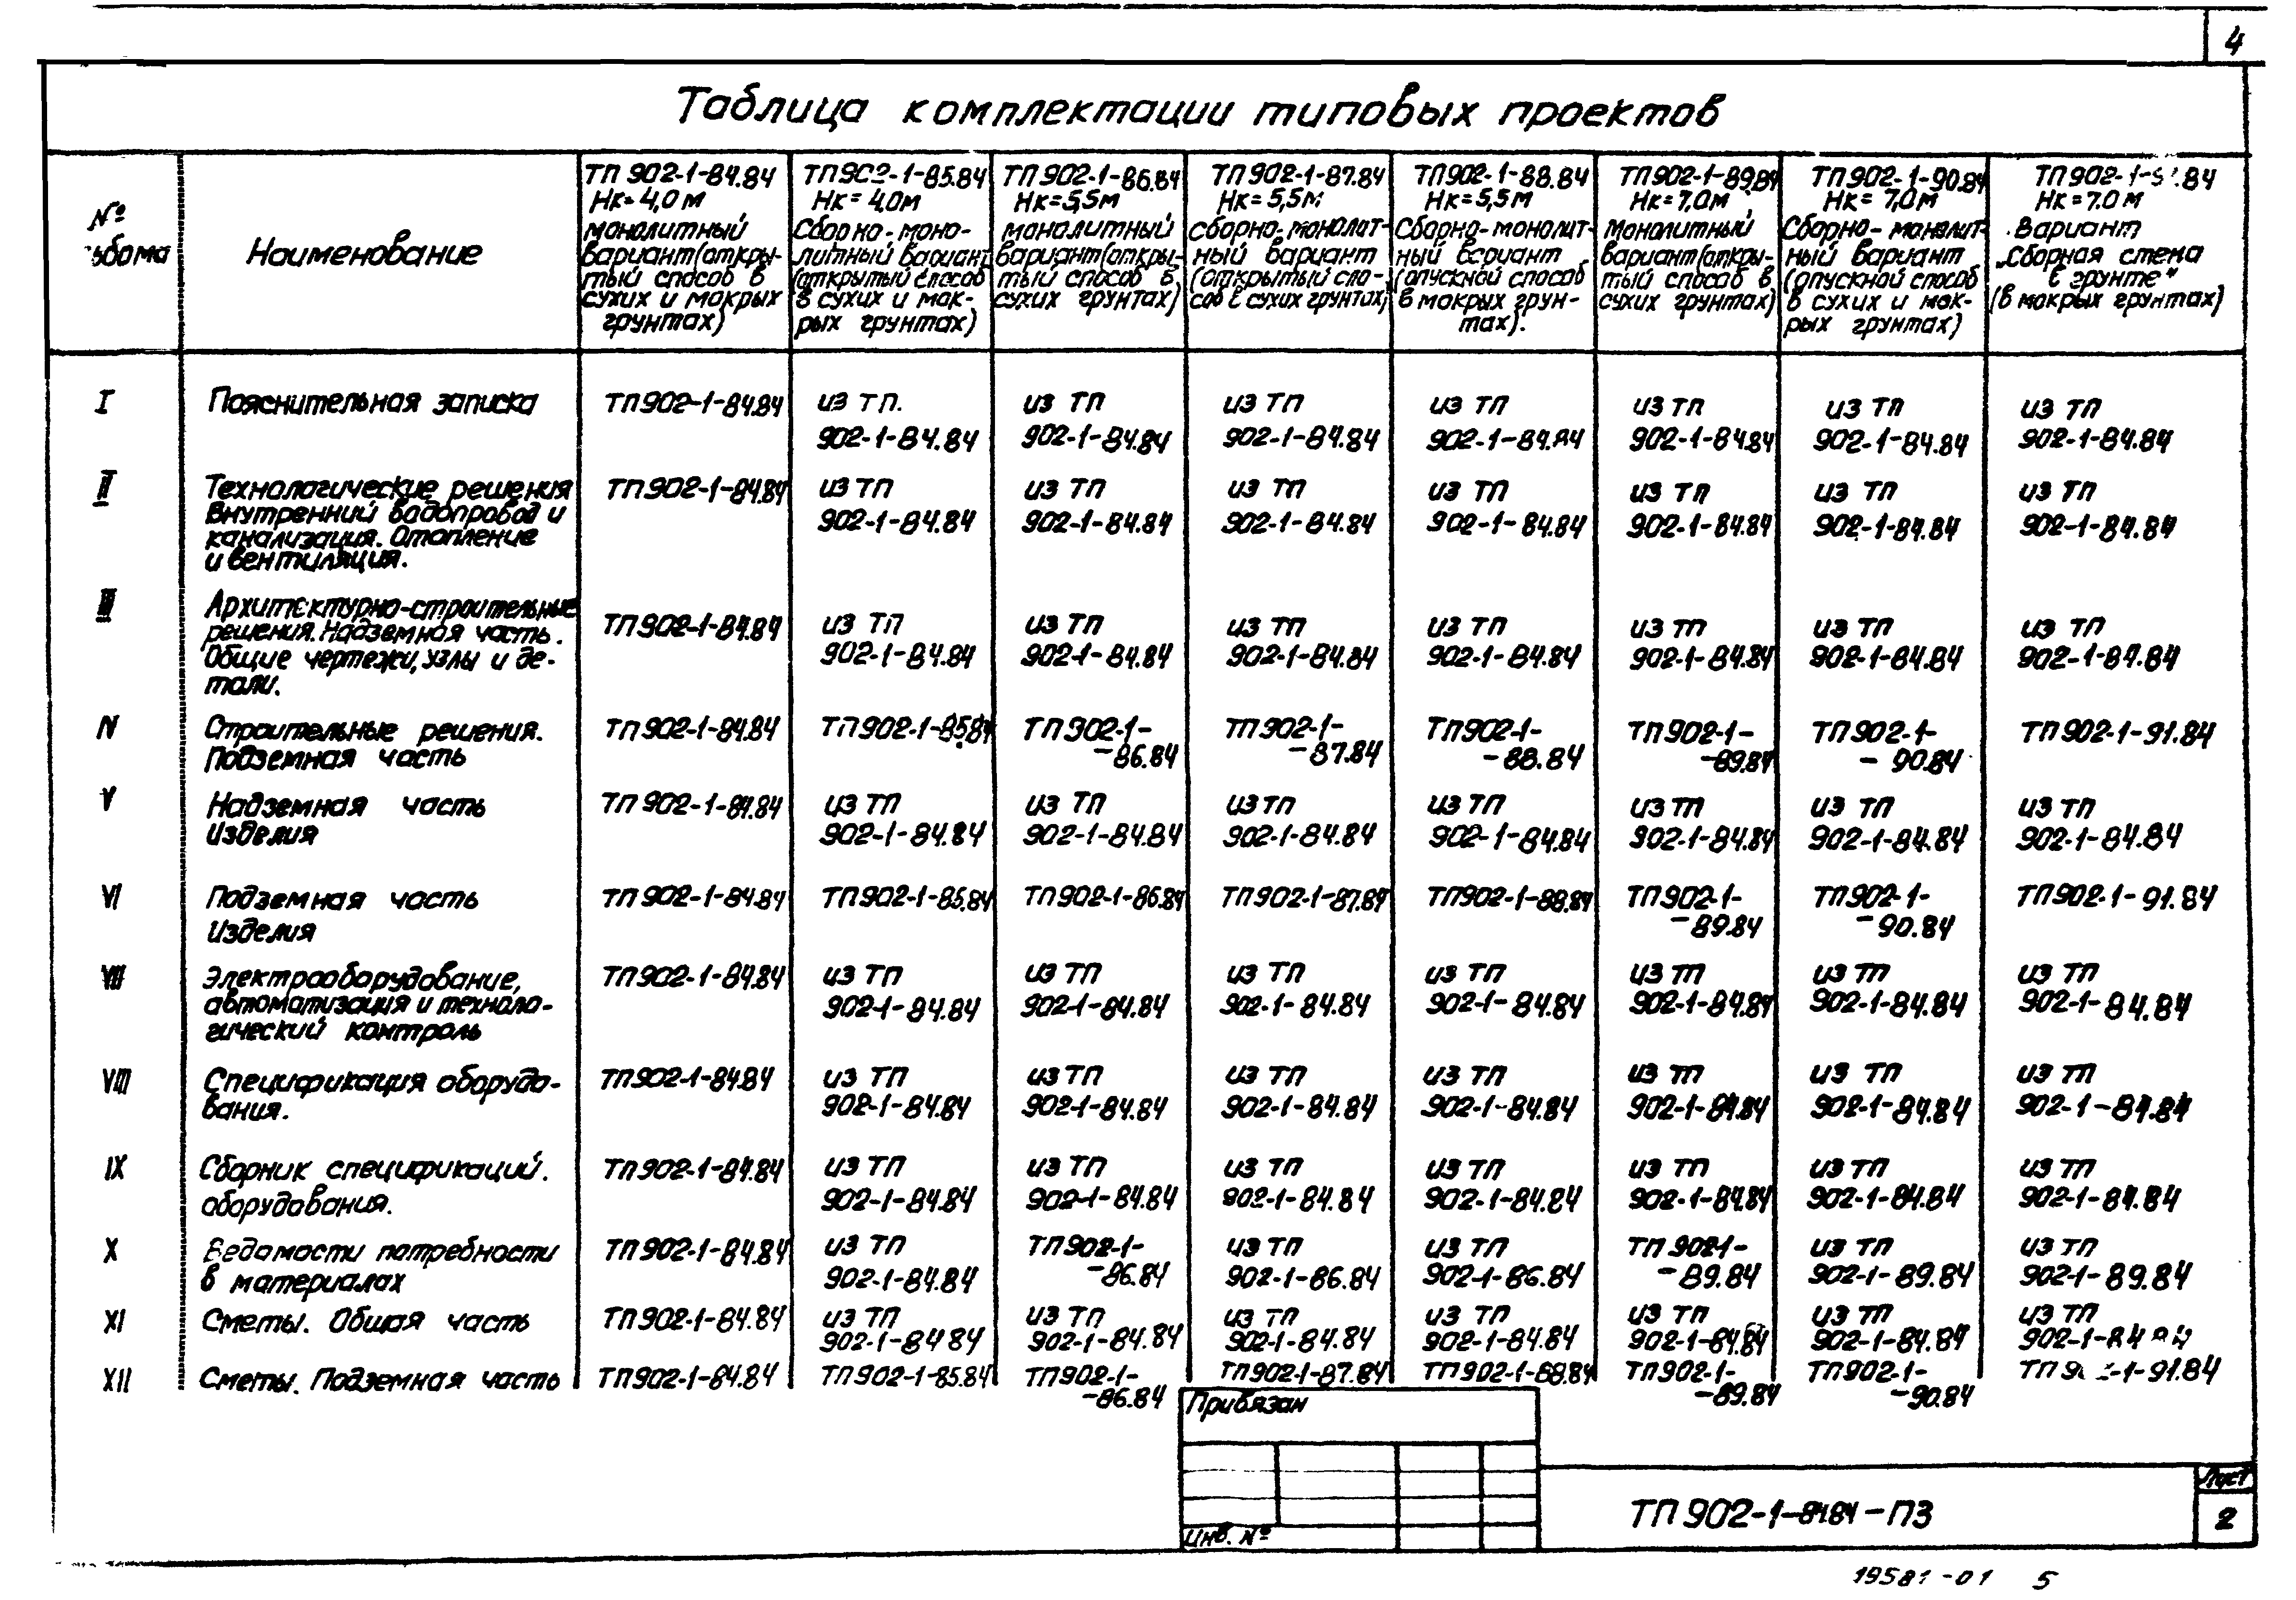 4
Таблица комплектации типовых проектов
№
альбома
Наименование
ТП 902-1-84.84
Нк= 4,0 м
монолитный
вариант (откры-
тый способ в
сухих и мокрых
грунтах)
ТП 902-1-85.84
Нк= 4,0м
Сборно-моно-
литный вариант
(открытый способ
в сухих и мок-
рых грунтах)
ТП 902-1-86.84
Нк=5,5м
монолитный
вариант (откры-
тый способ в
сухих грунтах)
ТП 902-1-87.84
Нк= 5,5м
сборно-монолит-
ный вариант
(открытый спо-
соб в сухих грунтах)
ТП902-1-88.84
Нк= 5,5 м
Сборно-монолит-
ный вариант
(опускной способ
в мокрых грун-
тах).
ТП902-1-89.84
Нк=7,0м
Монолитный
вариант (откры-
тый способ в
сухих грунтах)
ТП902-1-90.84
Нк= 7,0м
Сборно-монолит-
ный вариант
(опускной способ
в сухих и мок-
рых грунтах)
ТП902-1-91.84
Нк=7.0 м
Вариант
„Сборная стена
в грунте"
(в мокрых грунтах)
I
Пояснительная записка
ТП902-1-84.84
из ТП.
902-1-84.84
из ТП
902-1-84.84
из ТП
902-1-84.84
из ТП
902-1-84.84
из ТП
902-1-84.84
из ТП
902-1-84.84
из ТП
902-1-84.84
II
Технологические решения
Внутренний водопровод и
канализация. Отопление
и вентиляция.
ТП902-1-84.84
из ТП
902-1-84.84
из ТП
902-1-84.84
из ТП
902-1-84.84
из ТП
902-1-84.84
из ТП
902-1-84.84
из ТП
902-1-84.84
из ТП
902-1-84.84
III
Архитектурно-строительные
решения. Надземная часть.
Общие чертежи, узлы и де-
тали.
ТП902-1-84.84
из ТП
902-1-84.84
из ТП
902-1-84.84
из ТП
902-1-84.84
из ТП
902-1-84.84
из ТП
902-1-84.84
из ТП
902-1-84.84
из ТП
902-1-84.84
IV
Строительные решения.
Подземная часть
ТП902-1-84.84
ТП902-1-85.84
ТП902-1-
-86.84
ТП902-1-
-87.84
ТП902-1-
-88.84
ТП902-1-
-89.84
ТП902-1-
- 90.84
ТП902-1-91.84
V
Надземная часть
Изделия
ТП902-1-84.84
из ТП
902-1-84.84
из ТП
902-1-84.84
из ТП
902-1-84.84
из ТП
902-1-84.84
из ТП
902-1-84.84
из ТП
902-1-84.84
из ТП
902-1-84.84
VI
Подземная часть
Изделия
ТП902-1-84.84
ТП902-1-85.84
ТП902-1-86.84
ТП902-1-87.84
ТП902-1-88.84
ТП902-1-
-89.84
ТП902-1-
-90.84
ТП902-1-91.84
VII
Электрооборудование,
автоматизация и техноло-
гический контроль
ТП902-1-84.84
из ТП
902-1-84.84
из ТП
902-1-84.84
из ТП
902-1-84.84
из ТП
902-1-84.84
из ТП
902-1-84.84
из ТП
902-1-84.84
из ТП
902-1-84.84
VIII
Спецификация оборудо-
вания.
ТП902-1-84.84
из ТП
902-1-84.84
из ТП
902-1-84.84
из ТП
902-1-84.84
из ТП
902-1-84.84
из ТП
902-1-84.84
из ТП
902-1-84.84
из ТП
902-1-84.84
IX
Сборник спецификаций.
оборудования.
ТП902-1-84.84
из ТП
902-1-84.84
из ТП
902-1-84.84
из ТП
902-1-84.84
из ТП
902-1-84.84
из ТП
902-1-84.84
из ТП
902-1-84.84
из ТП
902-1-84.84
X
Ведомости потребности
в материалах
ТП902-1-84.84
из ТП
902-1-84.84
ТП902-1-
-86.84
из ТП
902-1-86.84
из ТП
902-1-86.84
ТП902-1-
-89.84
из ТП
902-1-89.84
из ТП
902-1-89.84
XI
Сметы. Общая часть
ТП902-1-84.84
из ТП
902-1-84.84
из ТП
902-1-84.84
из ТП
902-1-84.84
из ТП
902-1-84.84
из ТП
902-1-84.84
из ТП
902-1-84.84
из ТП
902-1-84.84
XII
Сметы. Подземная часть
ТП902-1-84.84
ТП902-1-85.84
ТП902-1-
-86.84
ТП902-1-87.84
ТП902-1-88.84
ТП902-1-
-89.84
ТП902-1-
-90.84
ТП902-1-91.84
Привязан
Инв. №
ТП 902-1-84.84-ПЗ
Лист
2
19581-01 5